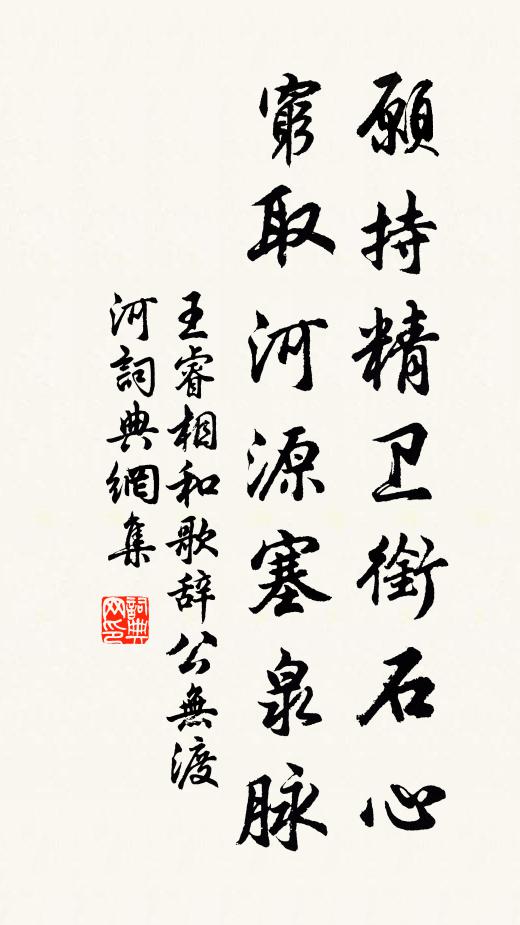 願持精卫銜石心
窮取河源塞泉脉
王睿相和歌辞公無渡
河詞典網集
詞典
网印